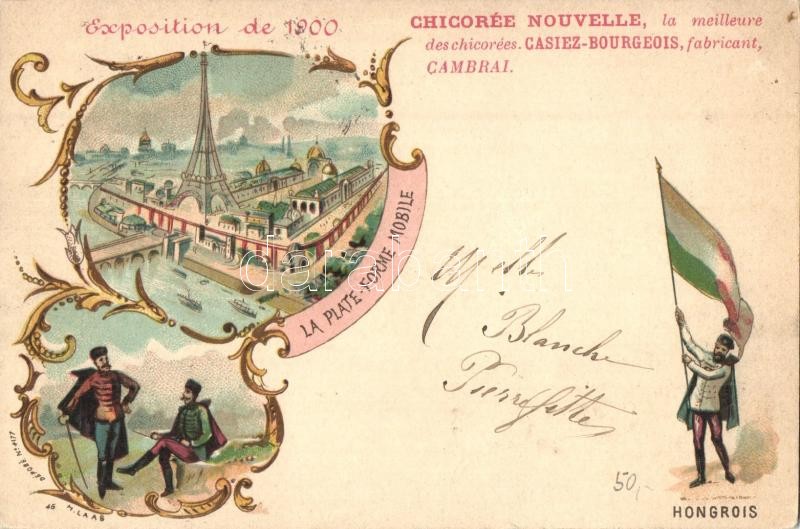 Exposition de 1900
CHICORÉE NOUVELLE, la meilleure
des chicorées. CASIEZ-BOURGEOIS, fabricant,
CAMBRAI.
LA PLATE-FORME MOBILE
Blanche
Pierrefitte
50,-
DÉPOSÉ
46 H. LAAS
HONGROIS